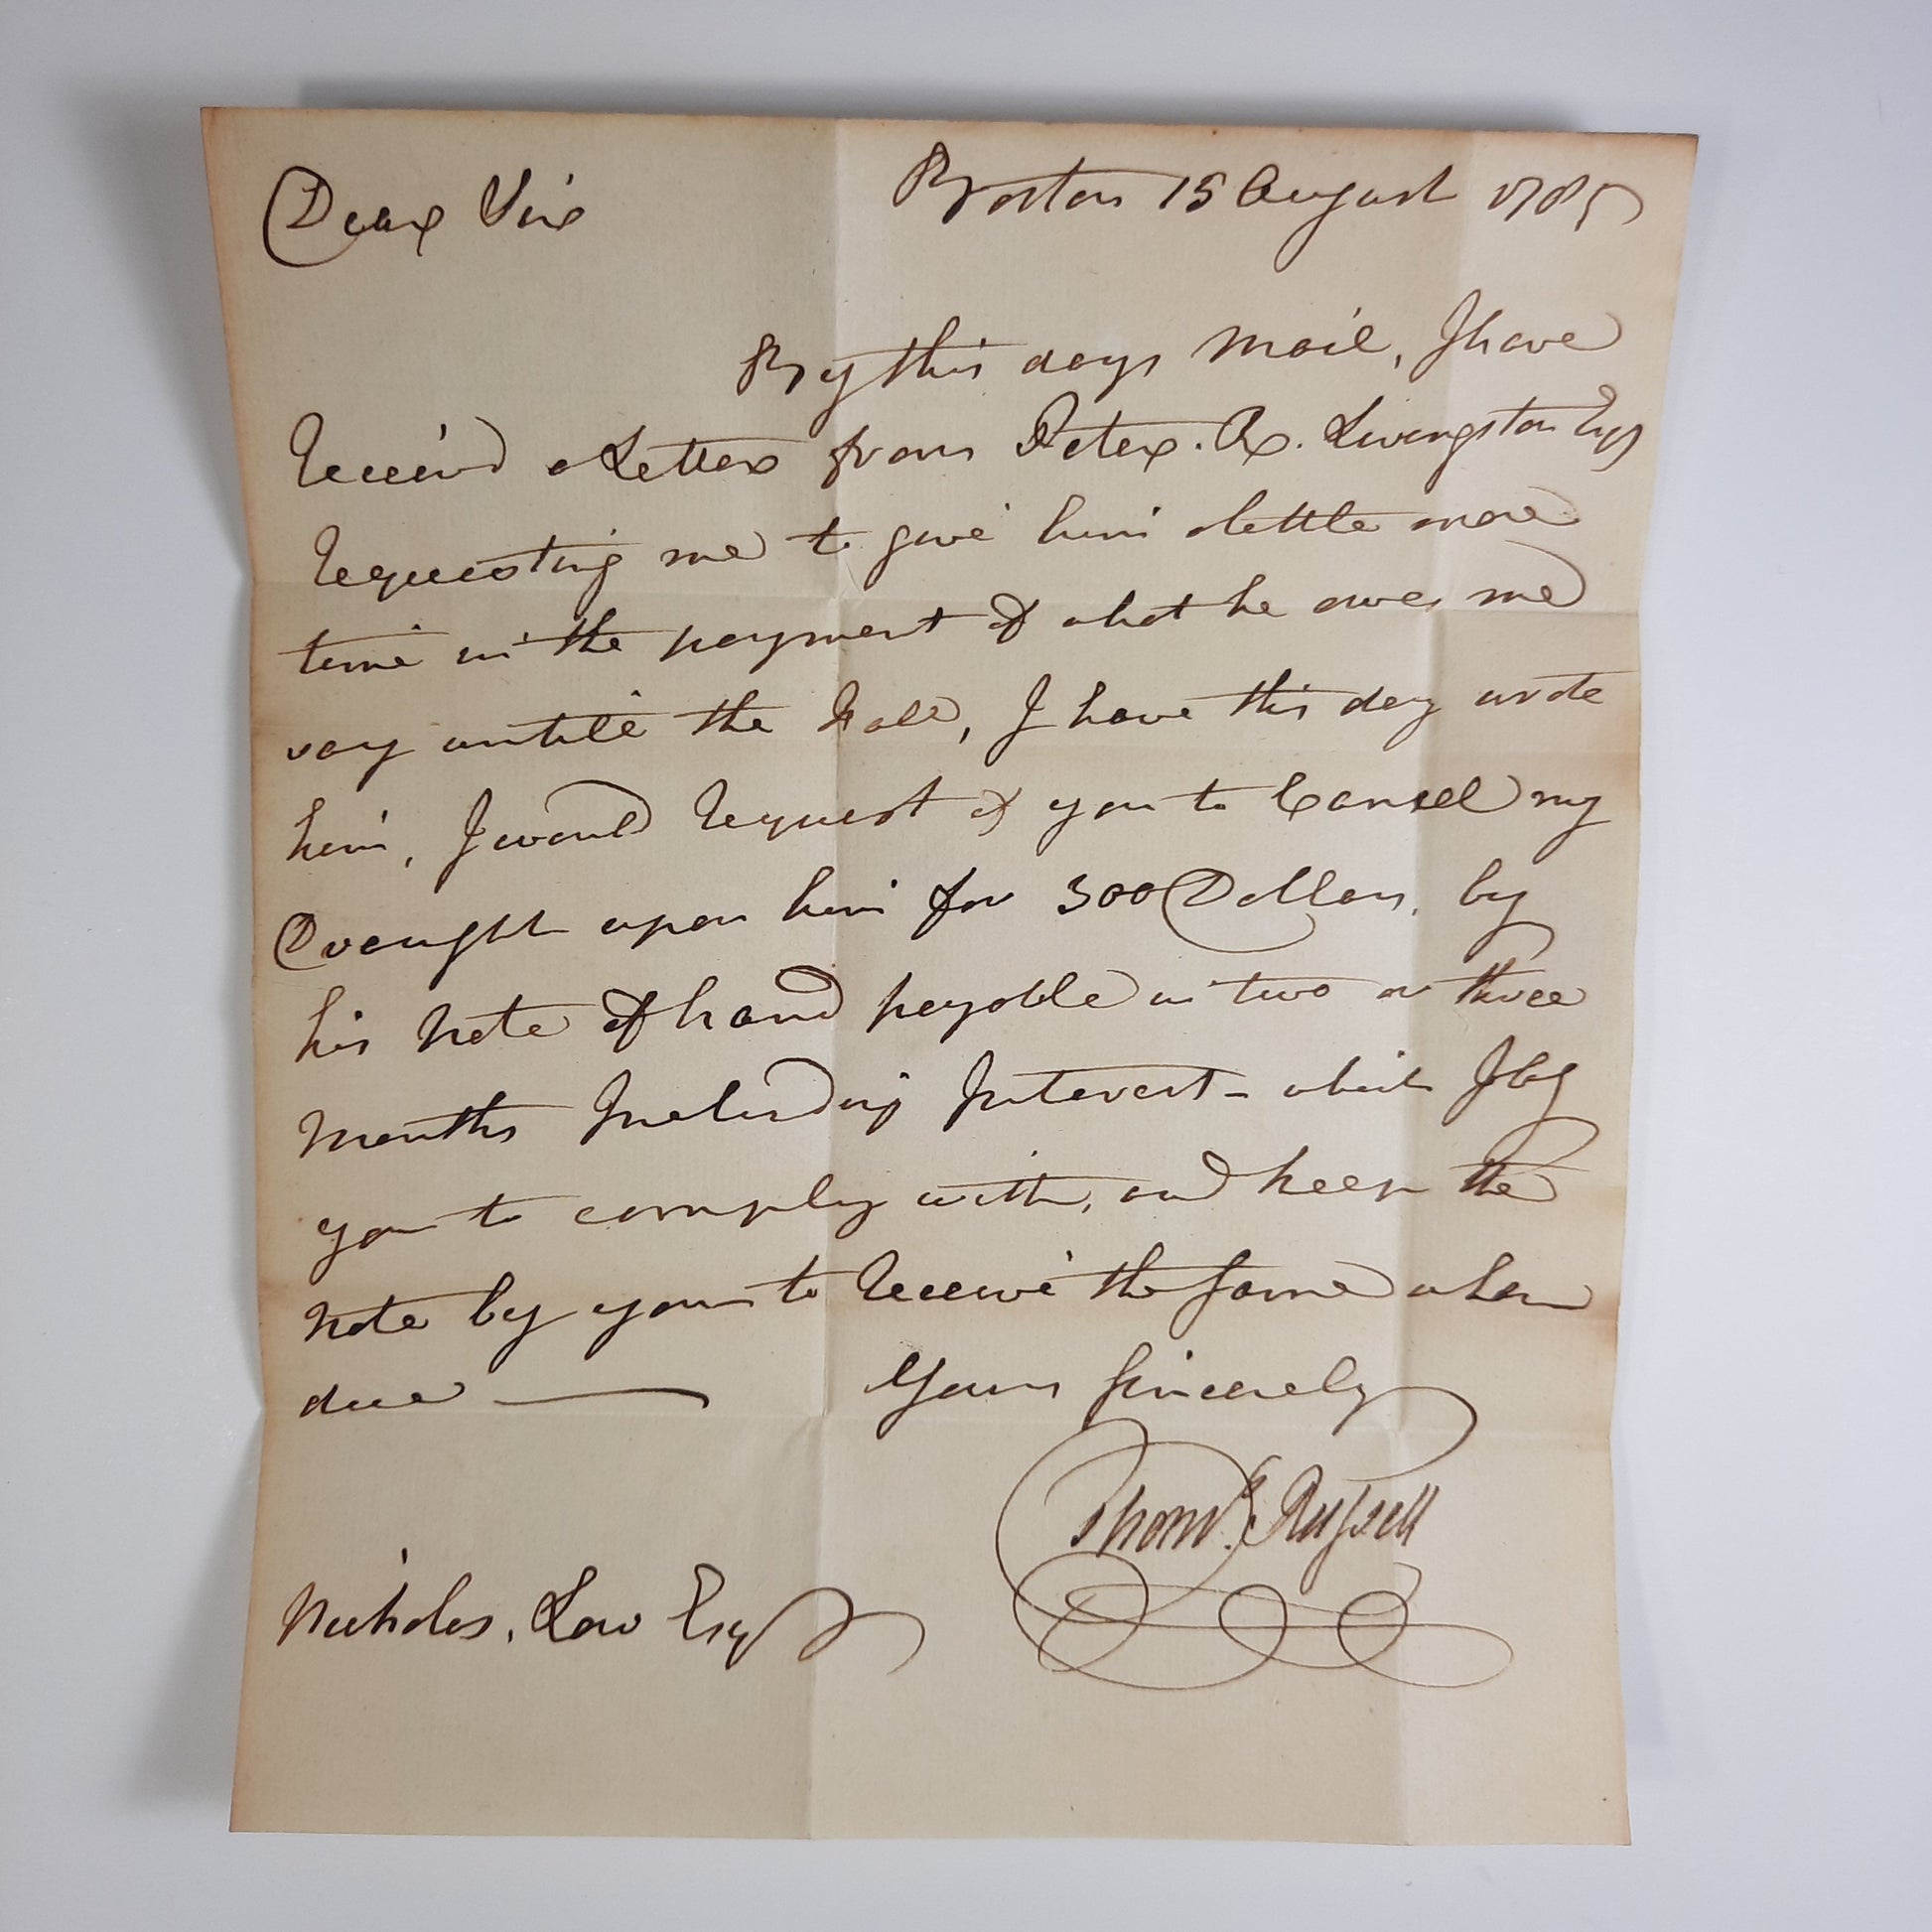 Dear Sir
Boston 15 August 1785
By this days Mail, I have
Received a Letter from Peter. R. Livingston Esqr
Requesting me to give him a little more
time in the payment of what he owes me
say untill the Fall, I have this day wrote
him, I would Request of you to Cansel my
Draught upon him for 300 Dollars, by
his Note of hand payable in two or three
Months Including Interest - which I beg
you to comply with, and keep the
Note by you to Receive the same when
due
Yours Sincerely
Thoms. Russell
Nicholas. Low Esqr